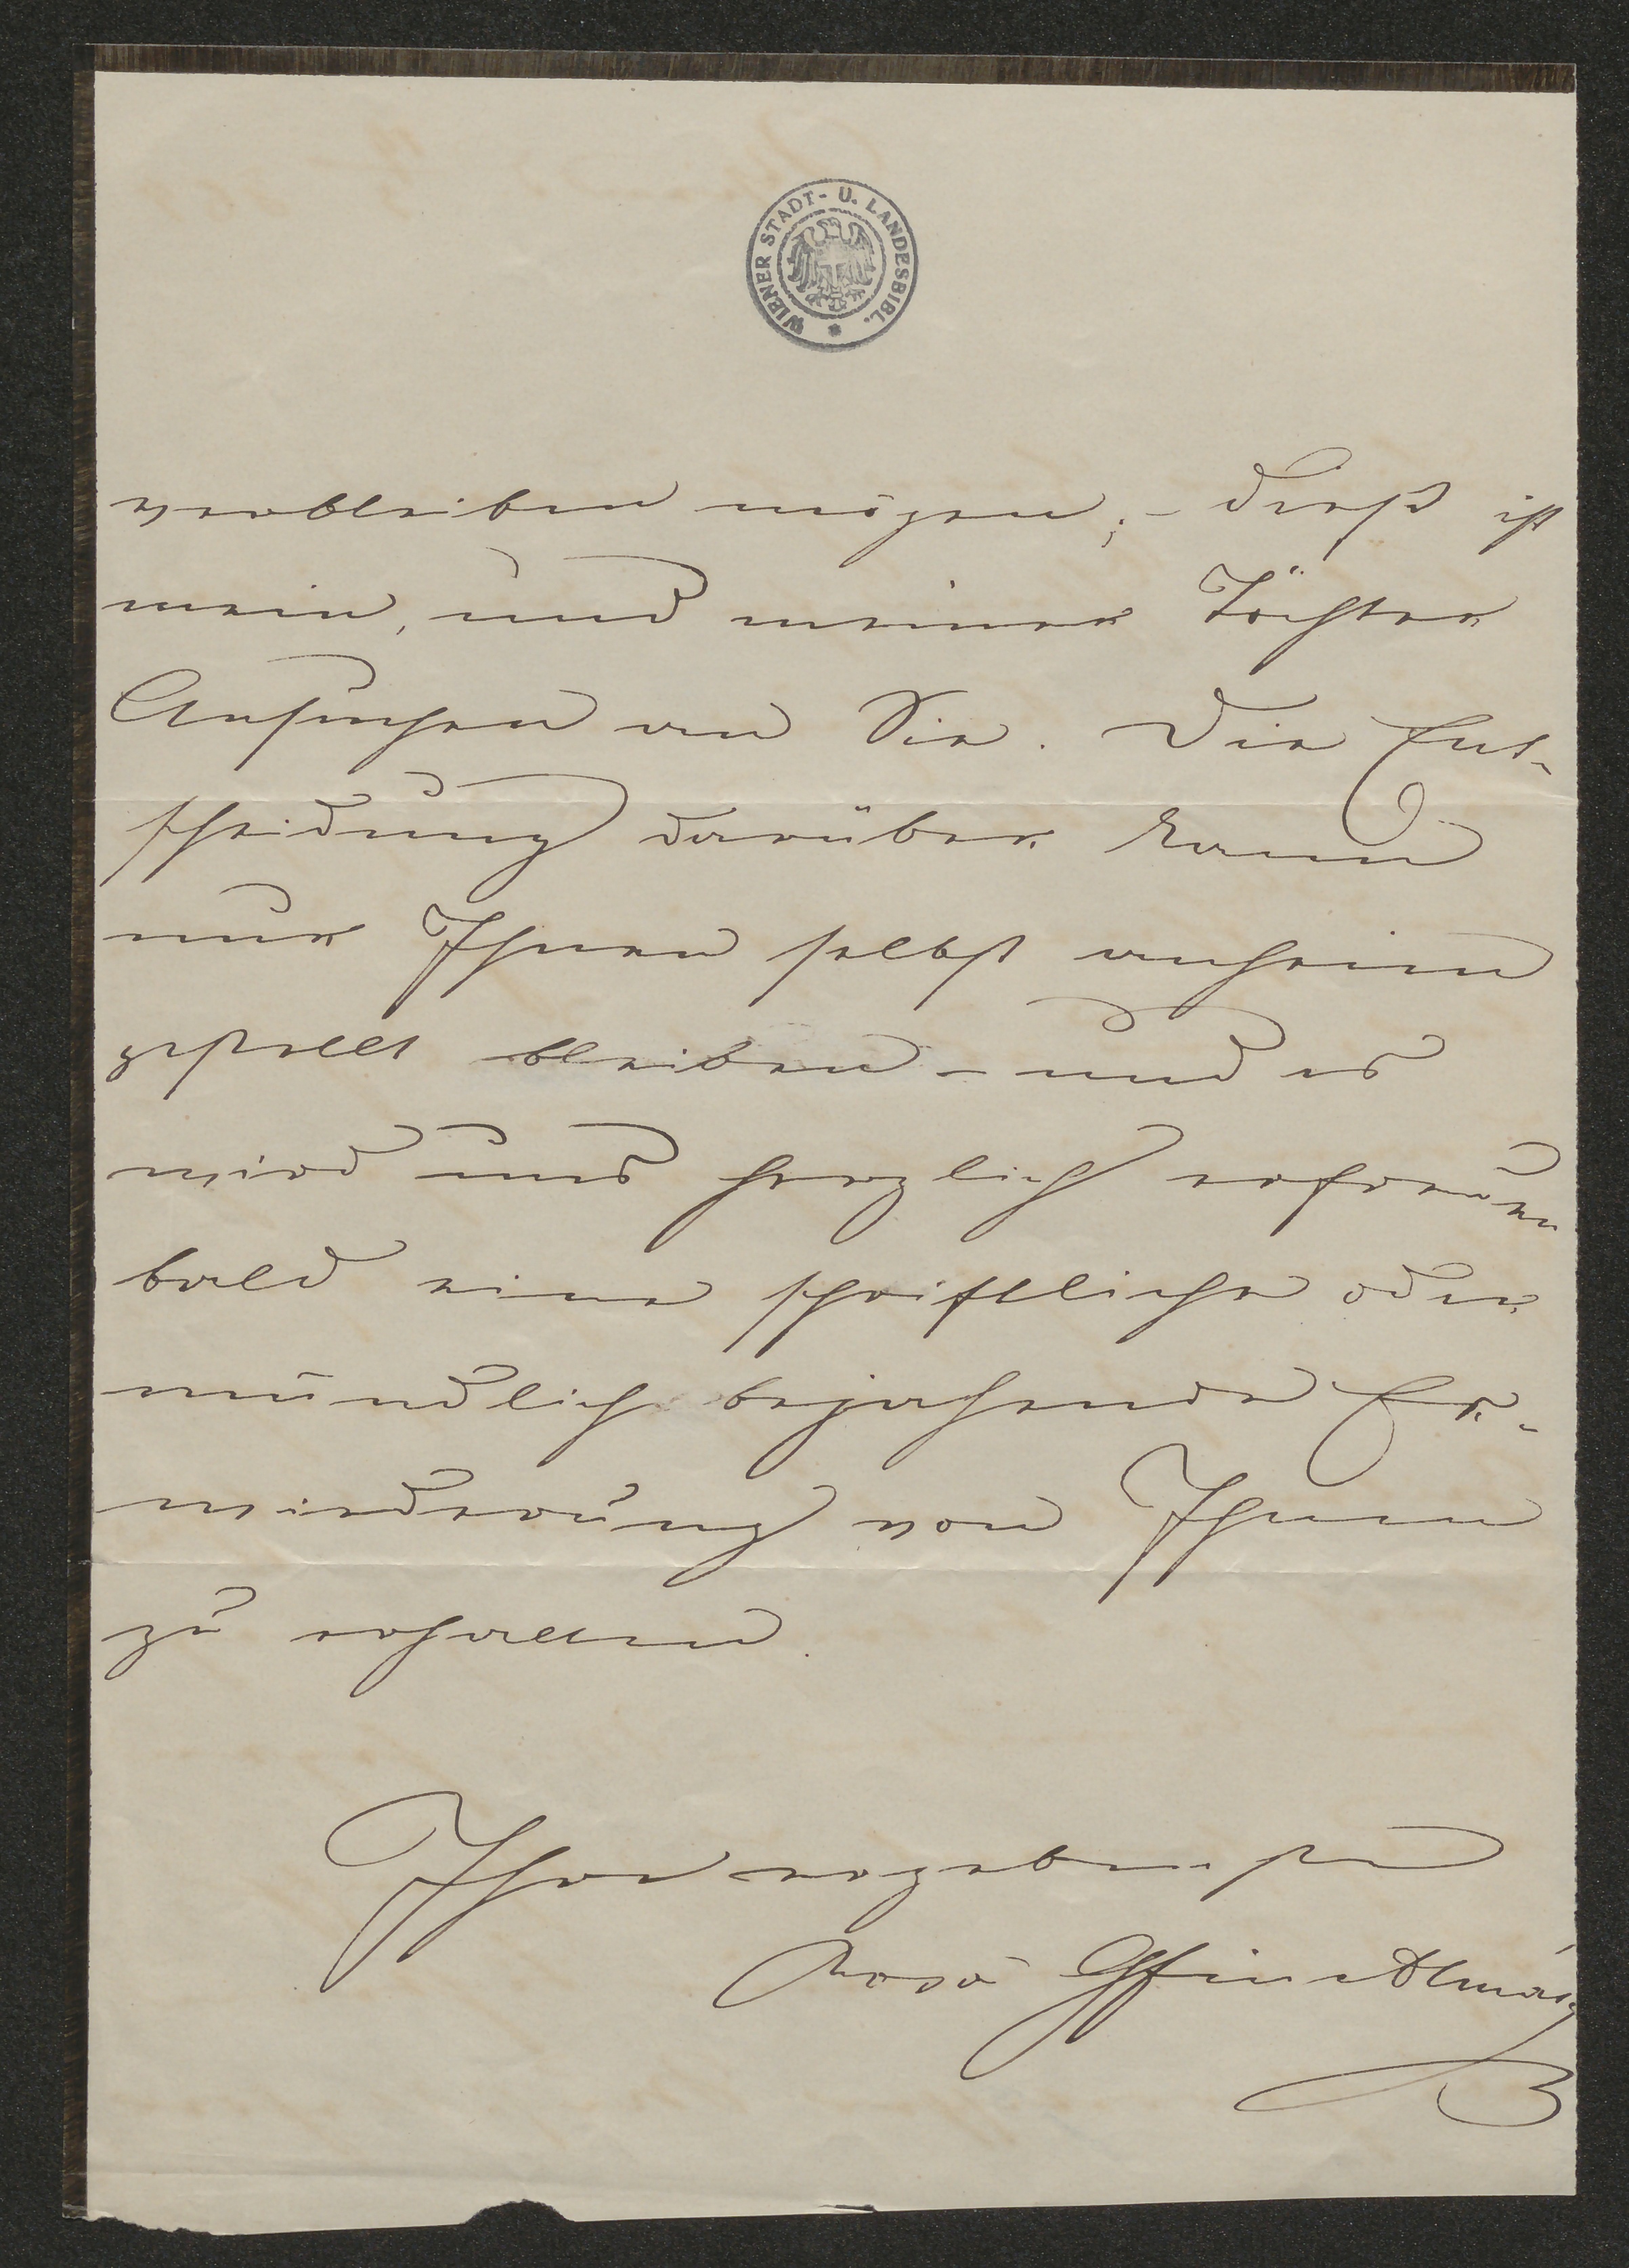 WIENER STADT- U. LANDESBIBL.
verbleiben mögen; – dieß ist
mein, und meiner Töchter
Ansuchen an Sie. Die Ent-
scheidung darüber kann
nur Ihnen selbst anheim
gestellt bleiben – und es
wird uns herzlich erfreuen
bald eine schriftliche oder
mündlich bejahende Er-
wiederung von Ihnen
zu erhalten.
Ihre ergebenste
Rosa